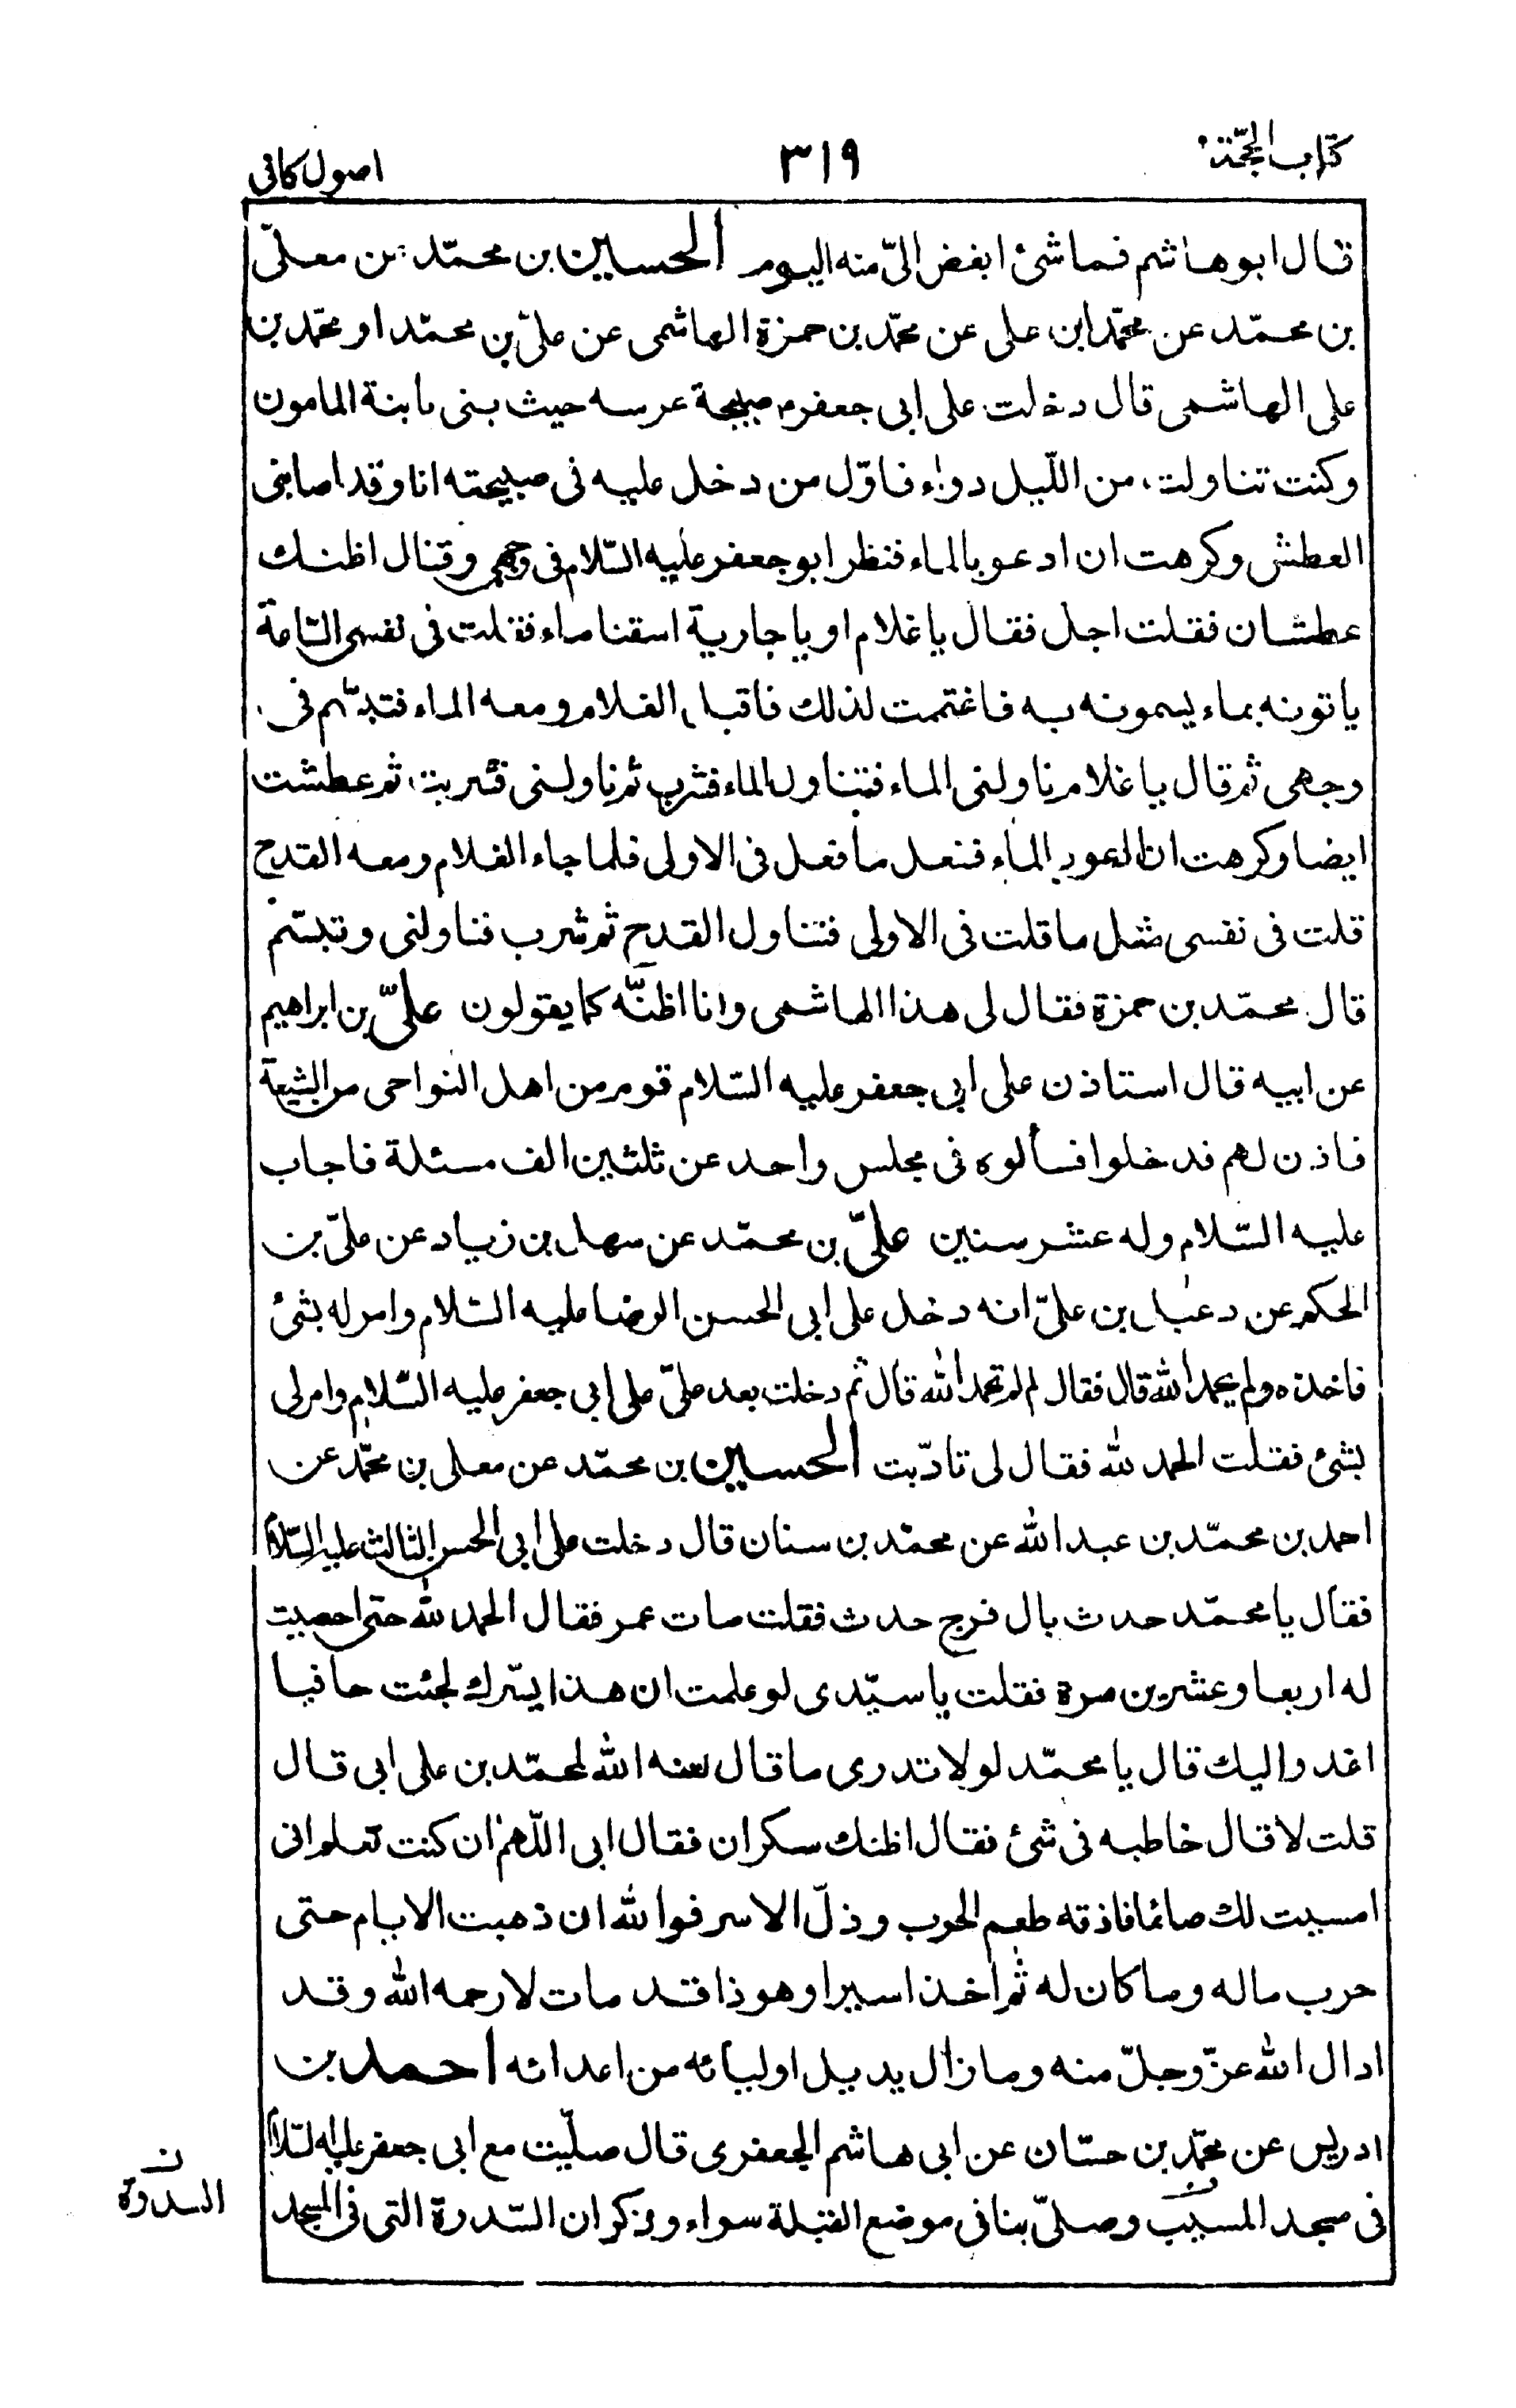 كتاب الحجّة
٣١٩
اصول كافى
قال ابو هاشم فما شئ ابغض الىّ منه اليوم الحسين بن محمّد عن معلّى
بن محمّد عن محمّد ابن على عن محمّد بن حمزة الهاشمى عن علىّ بن محمّد او محمّد بن
على الهاشمى قال دخلت على ابى جعفر م صبيحة عرسه حيث بنى بابنة المامون
وكنت تناولت من اللّيل دواء فاوّل من دخل عليه فى صبيحته انا وقد اصابنى
العطش وكرهت ان ادعو بالماء فنظر ابو جعفر عليه السّلام فى وجهى وقال اظنك
عطشان فقلت اجل فقال يا غلام او يا جارية اسقنا ماء فقلت فى نفسى السّاعة
ياتونه بماء يسمونه به فاغتممت لذلك فاقبل الغلام ومعه الماء فتبسّم فى
وجهى ثم قال يا غلام ناولنى الماء فتناول الماء فشرب ثم ناولنى فشربت ثم عطشت
ايضا وكرهت ان ادعو بالماء ففعل ما فعل فى الاولى فلما جاء الغلام ومعه القدح
قلت فى نفسى مثل ما قلت فى الاولى فتناول القدح ثم شرب فناولنى وتبسّم
قال محمّد بن حمزة فقال لى هذا الهاشمى وانا اظنّه كما يقولون علىّ بن ابراهيم
عن ابيه قال استاذن على ابى جعفر عليه السّلام قوم من اهل النواحى من الشيعة
فاذن لهم فدخلوا فسألوه فى مجلس واحد عن ثلثين الف مسئلة فاجاب
عليه السّلام وله عشر سنين علىّ بن محمّد عن سهل بن زياد عن علىّ بن
الحكم عن دعبل بن علىّ انه دخل على ابى الحسن الرضا عليه السّلام وامر له بشئ
فاخذه ولم يحمد الله قال فقال لم لم تحمد الله قال ثم دخلت بعد علىّ على ابى جعفر عليه السّلام وامر لى
بشئ فقلت الحمد لله فقال لى تادّبت الحسين بن محمّد عن معلى بن محمّد عن
احمد بن محمّد بن عبد الله عن محمّد بن سنان قال دخلت على ابى الحسن الثالث عليه السّلام
فقال يا محمّد حدث بال فرج حدث فقلت مات عمر فقال الحمد لله حتى احصيت
له اربعا وعشرين مرة فقلت يا سيّدى لو علمت ان هذا يسّرك لجئت حافيا
اغدو اليك قال يا محمّد لو لا تدرى ما قال لعنه الله لمحمّد بن على ابى قال
قلت لا قال خاطبه فى شئ فقال اظنك سكران فقال ابى اللّهم ان كنت تعلم انى
امسيت لك صائما فاذقه طعم الحرب وذلّ الاسر فوالله ان ذهبت الايام حتى
حرب ماله وما كان له ثم اخذ اسيرا وهو ذا قد مات لا رحمه الله وقد
ادال الله عزّ وجلّ منه وما زال يديل اوليائه من اعدائه احمد بن
ادريس عن محمّد بن حسّان عن ابى هاشم الجعفرى قال صلّيت مع ابى جعفر عليه السّلام
فى مسجد المسيّب وصلّى بنا فى موضع القبلة سواء وذكر ان السّدرة التى فى المسجد
ن
السدرة